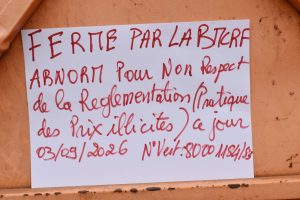 FERME PAR LA BMCRF
ABNORM Pour Non Respect
de la Reglementation (Pratique
des Prix illicites) a jour
03/09/2026 N°Vert: 80001184/85